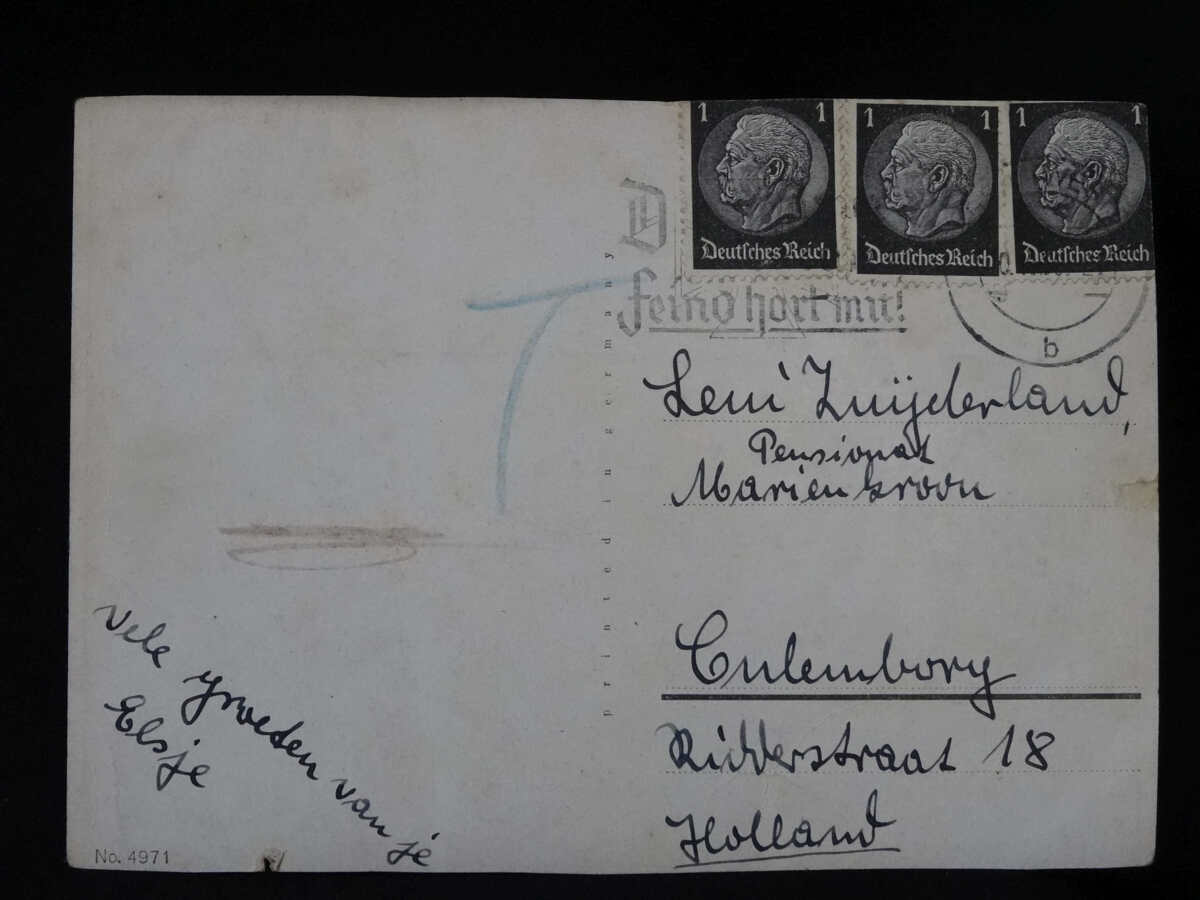 1 1 1 1 1 1
Deutsches Reich Deutsches Reich Deutsches Reich
D
Feind hört mit!
b
T
printed in germany
Leni Zuijderland,
Pensionat
Marienkroon
Culemborg
Ridderstraat 18
Holland
Vele groeten van je
Elsje
No. 4971